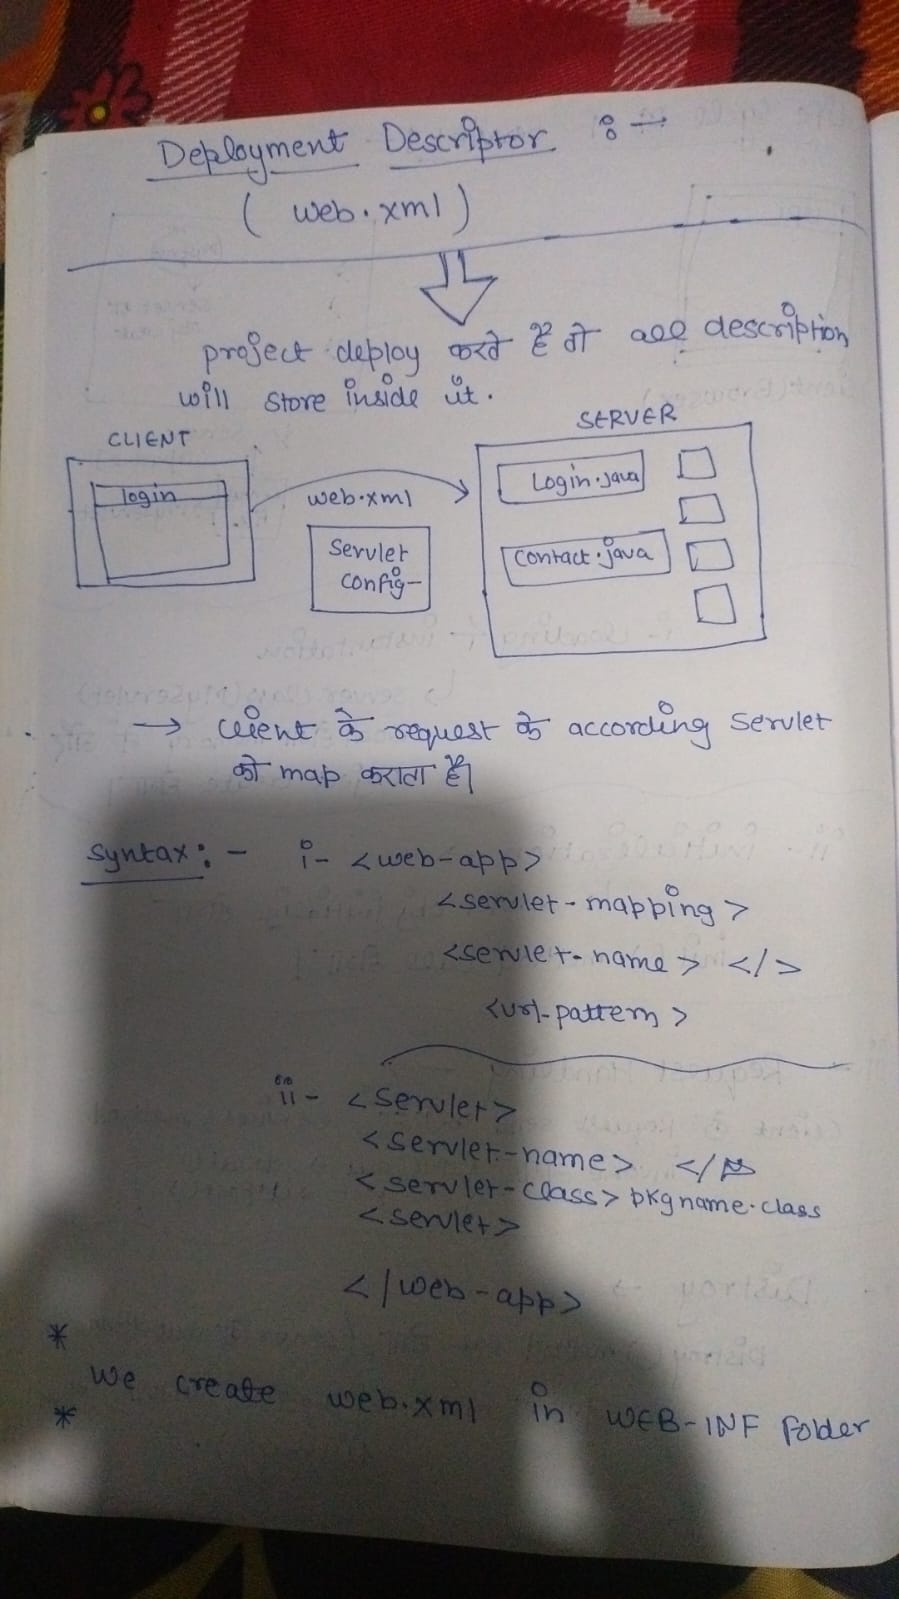 Deployment Descriptor :→
( web.xml )
project deploy करते हैं तो all description
will store inside it.
CLIENT
SERVER
login
web.xml
Servlet
config-
Login.java
Contact.java
→ client के request के according servlet
को map कराता है।
Syntax:- i- <web-app>
<servlet-mapping>
<servlet-name> </>
<url-pattern>
ii- <servlet>
<servlet-name> </>
<servlet-class> pkgname.class
<servlet>
</web-app>
*
we create web.xml in WEB-INF folder
*